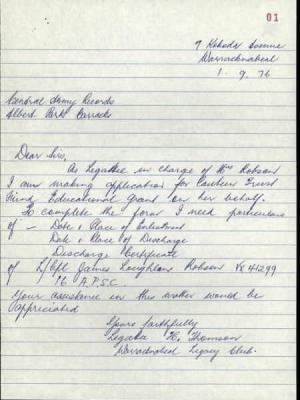 01
9 Kokoda Avenue
Warracknabeal
1. 9. 76
Central Army Records
Albert Park Barracks
Dear Sirs,
As Legatee in charge of Mrs Robson
I am making application for Canteen Trust
Fund Educational grant on her behalf.
To complete the form I need particulars
of - Date & Place of Enlistment
Date & Place of Discharge
Discharge Certificate
of L/Cpl James Loughlan Robson VX 41299
16 A.P.S.C.
Your assistance in this matter would be
appreciated
Yours faithfully
Legatee H. Thomson
Warracknabeal Legacy Club.